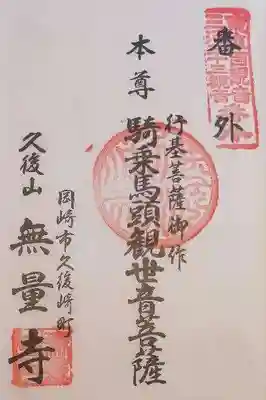 番外
行基菩薩御作
本尊 騎乗馬頭観世音菩薩
岡崎市久後崎町
久後山 無量寺